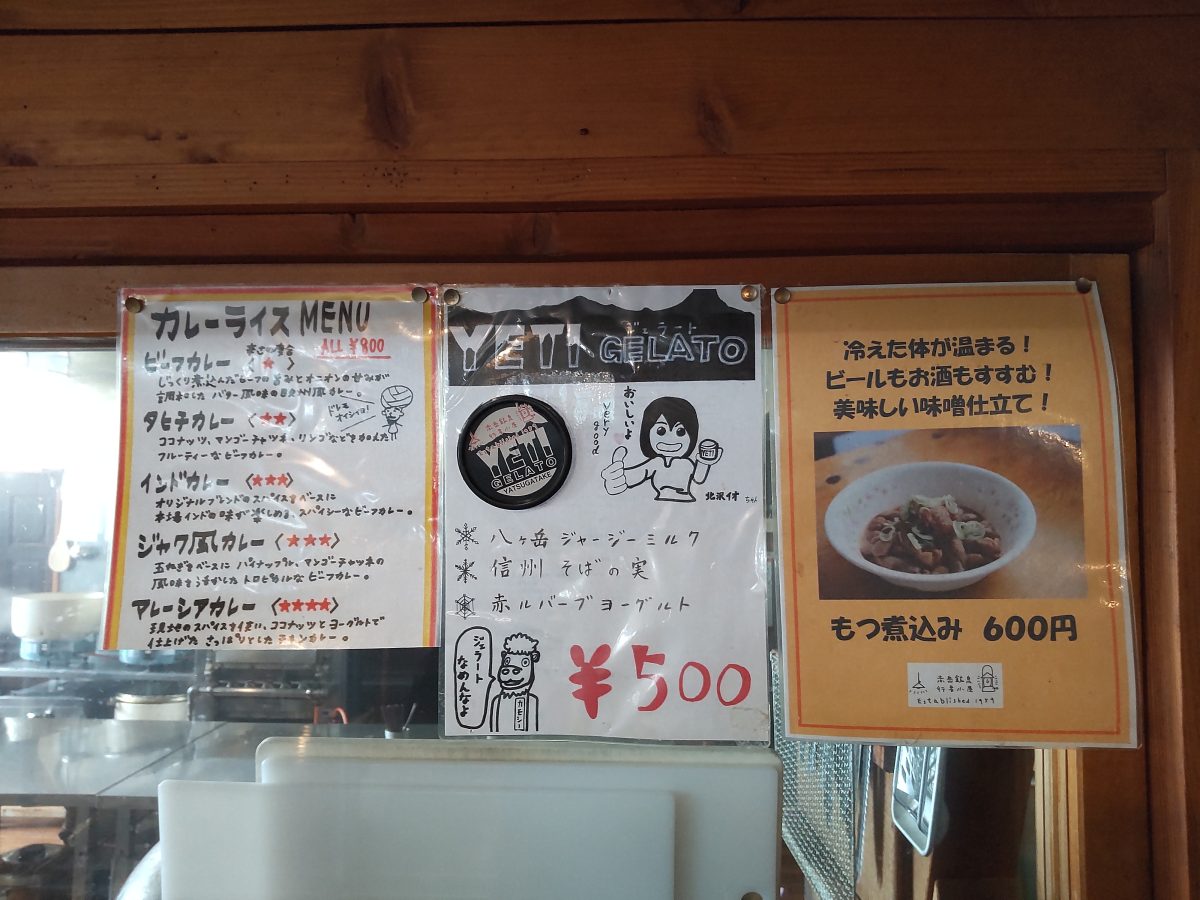 カレーライス MENU
ALL ¥800
ビーフカレー 〈★〉
じっくり煮込んだビーフの旨みとオニオンの甘みが
バター風味の欧州風カレー。
タヒチカレー 〈★★〉
ココナッツ、マンゴーチャツネ、リンゴなどをかんだ
フルーティーなビーフカレー。
ドレも
オイシイヨ!
インドカレー 〈★★★〉
オリジナルブレンドのスパイスをベースに
本場インドの味が楽しめる、スパイシーなビーフカレー。
ジャワ風カレー 〈★★★〉
玉ねぎをベースに パイナップル、マンゴーチャツネの
風味を活かした トロピカルなビーフカレー。
マレーシアカレー 〈★★★★〉
現地のスパイスを使い、ココナッツとヨーグルトで
仕上げた さっぱりとした チキンカレー。
YETI ジェラート
GELATO
赤岳鉱泉
行者小屋
YETI
GELATO
YATSUGATAKE
おいしいよ
very good
北沢イオ ちゃん
八ヶ岳 ジャージーミルク
信州 そばの実
赤ルバーブヨーグルト
ジェラート
なめんなよ
カモシー
¥500
冷えた体が温まる!
ビールもお酒もすすむ!
美味しい味噌仕立て!
もつ煮込み 600円
赤岳鉱泉
行者小屋
Established 1959